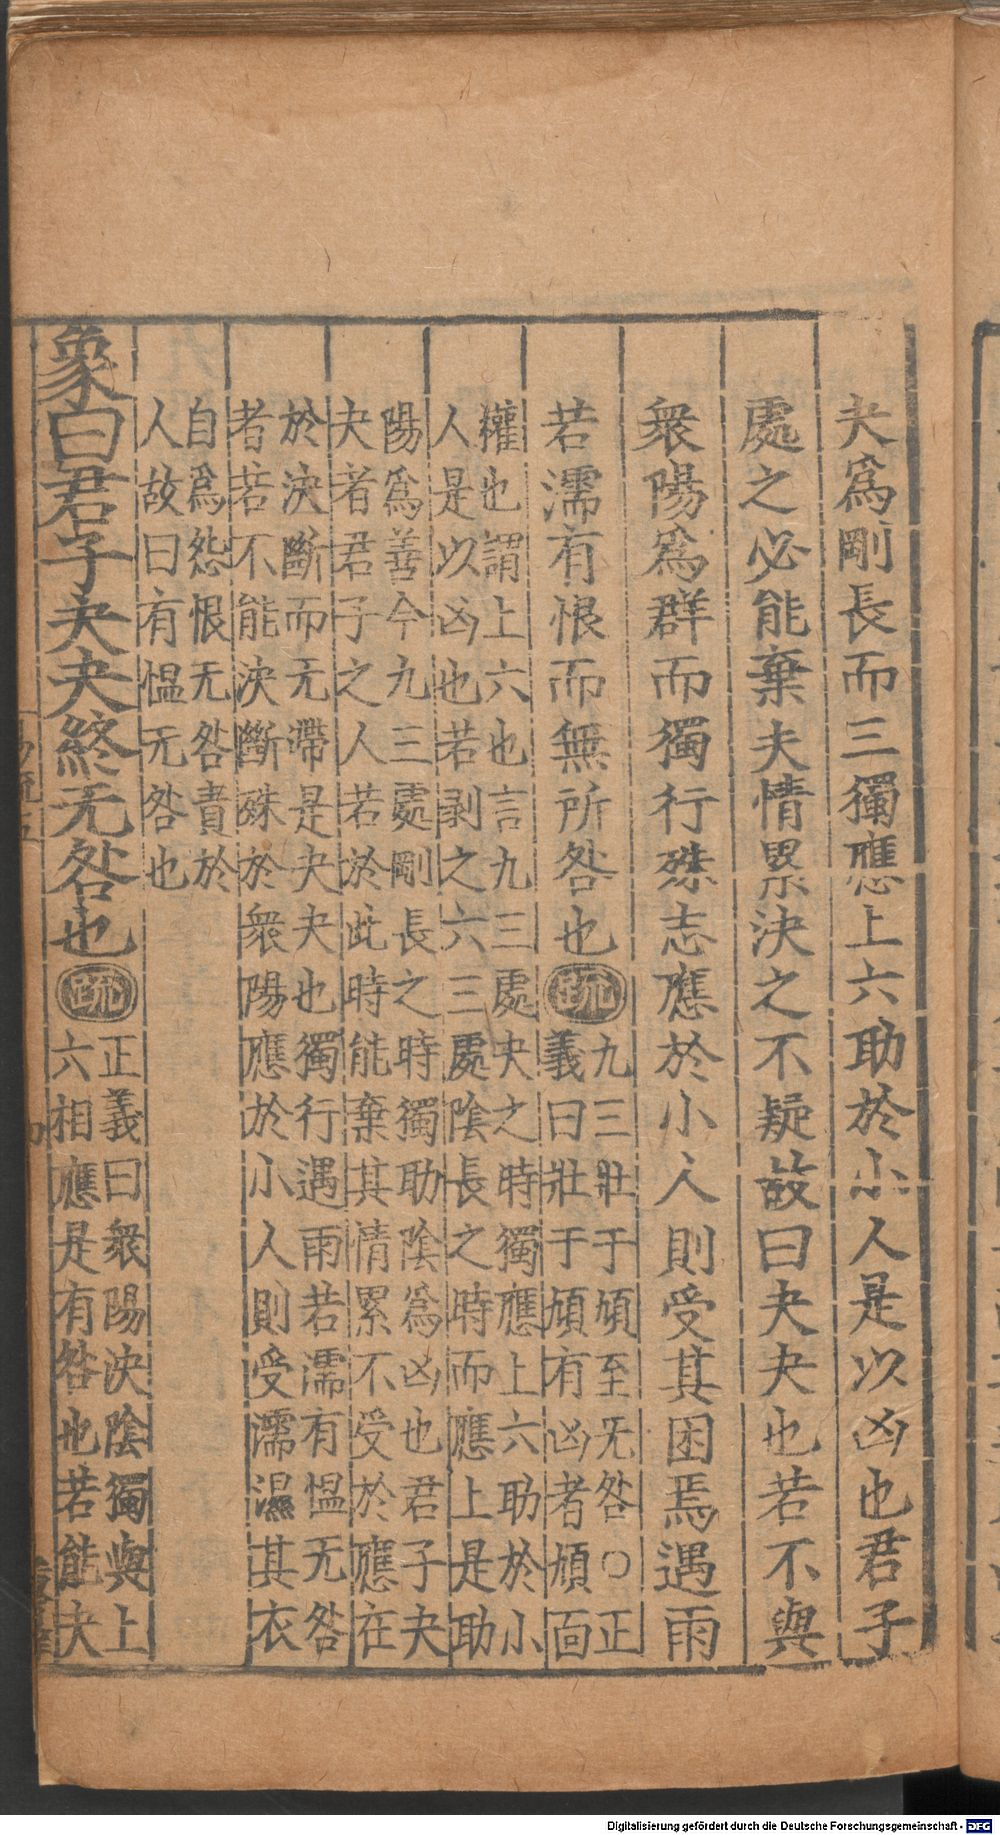 夬爲剛長而三獨應上六助於小人是以凶也君子
處之必能棄夫情累決之不疑故曰夬夬也若不與
衆陽爲群而獨行殊志應於小人則受其困焉遇雨
若濡有恨而無所咎也疏九三壯于頄至旡咎○正
義曰壯于頄有凶者頄面
權也謂上六也言九三處夬之時獨應上六助於小
人是以凶也若剥之六三處陰長之時而應上是助
陽爲善今九三處剛長之時獨助陰爲凶也君子夬
夬者君子之人若於此時能棄其情累不受於應在
於決斷而无滯是夬夬也獨行遇雨若濡有愠无咎
者若不能決斷殊於衆陽應於小人則受濡濕其衣
自爲怨恨无咎責於
人故曰有愠无咎也
象曰君子夬夬終无咎也疏正義曰衆陽決陰獨與上
六相應是有咎也若能夬
Digitalisierung gefördert durch die Deutsche Forschungsgemeinschaft - DFG